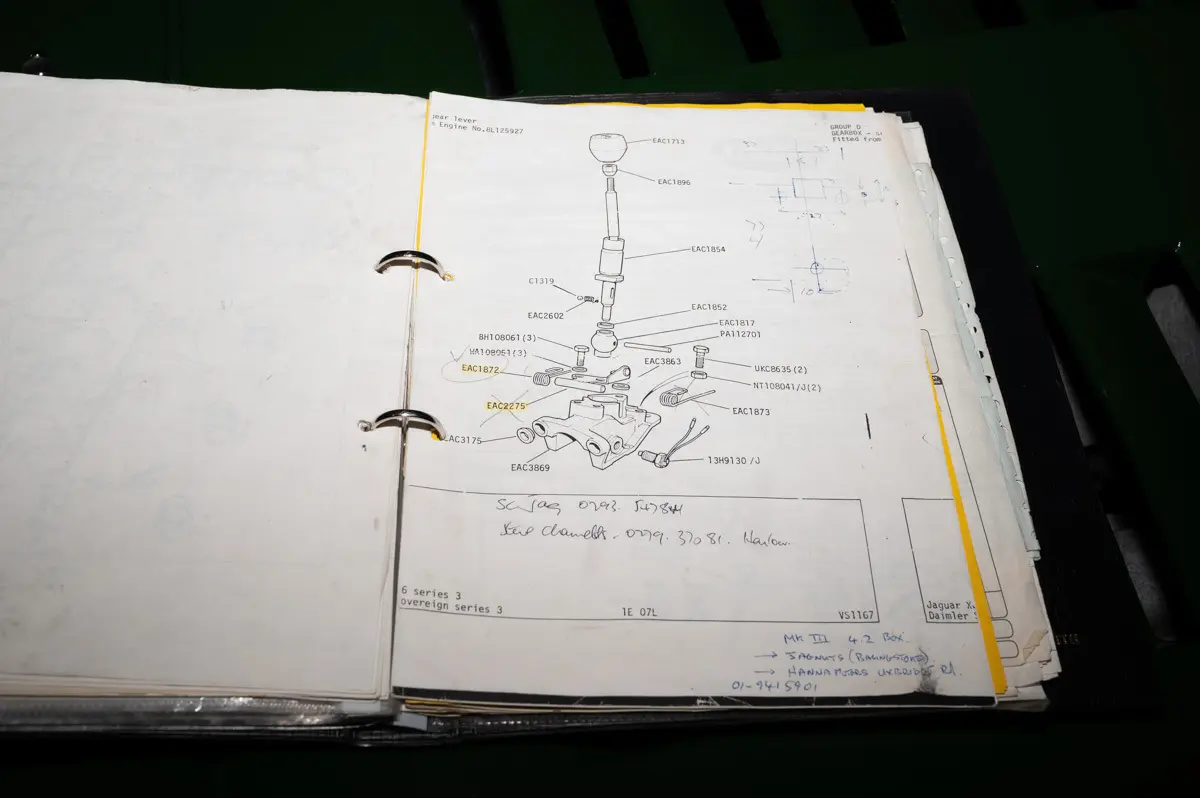 ear lever
Engine No.8L125927
GROUP D
GEARBOX -
Fitted from
EAC1713
EAC1896
EAC1854
C1319
EAC2602
EAC1852
EAC1817
PA112701
BH108061(3)
WA108051(3)
EAC3863
EAC1872
UKC8635(2)
NT108041/J(2)
EAC2275
EAC1873
EAC3175
EAC3869
13H9130/J
0793.
0279. 37081. Harlow.
6 series 3
overeign series 3
1E 07L
VS1167
Jaguar X
Daimler
MK III 4.2 BOX.
→ JAGNUTS (BASINGSTOKE)
→ HANNA MOTORS UXBRIDGE Rd.
01-9415901